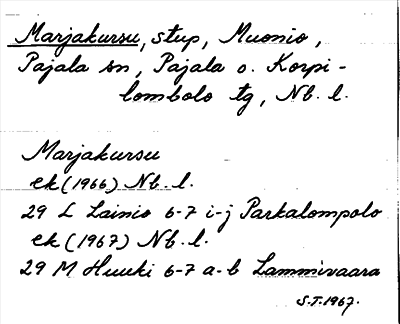 Marjakursu, stup, Muonio,
Pajala sn, Pajala o. Korpi-
lombolo tg, Nb. l.
Marjakursu
ek (1966) Nb. l.
29 L Lainio 6-7 i-j Parkalompolo
ek (1967) Nb. l.
29 M Huuki 6-7 a-b Lammivaara
S.T. 1967.